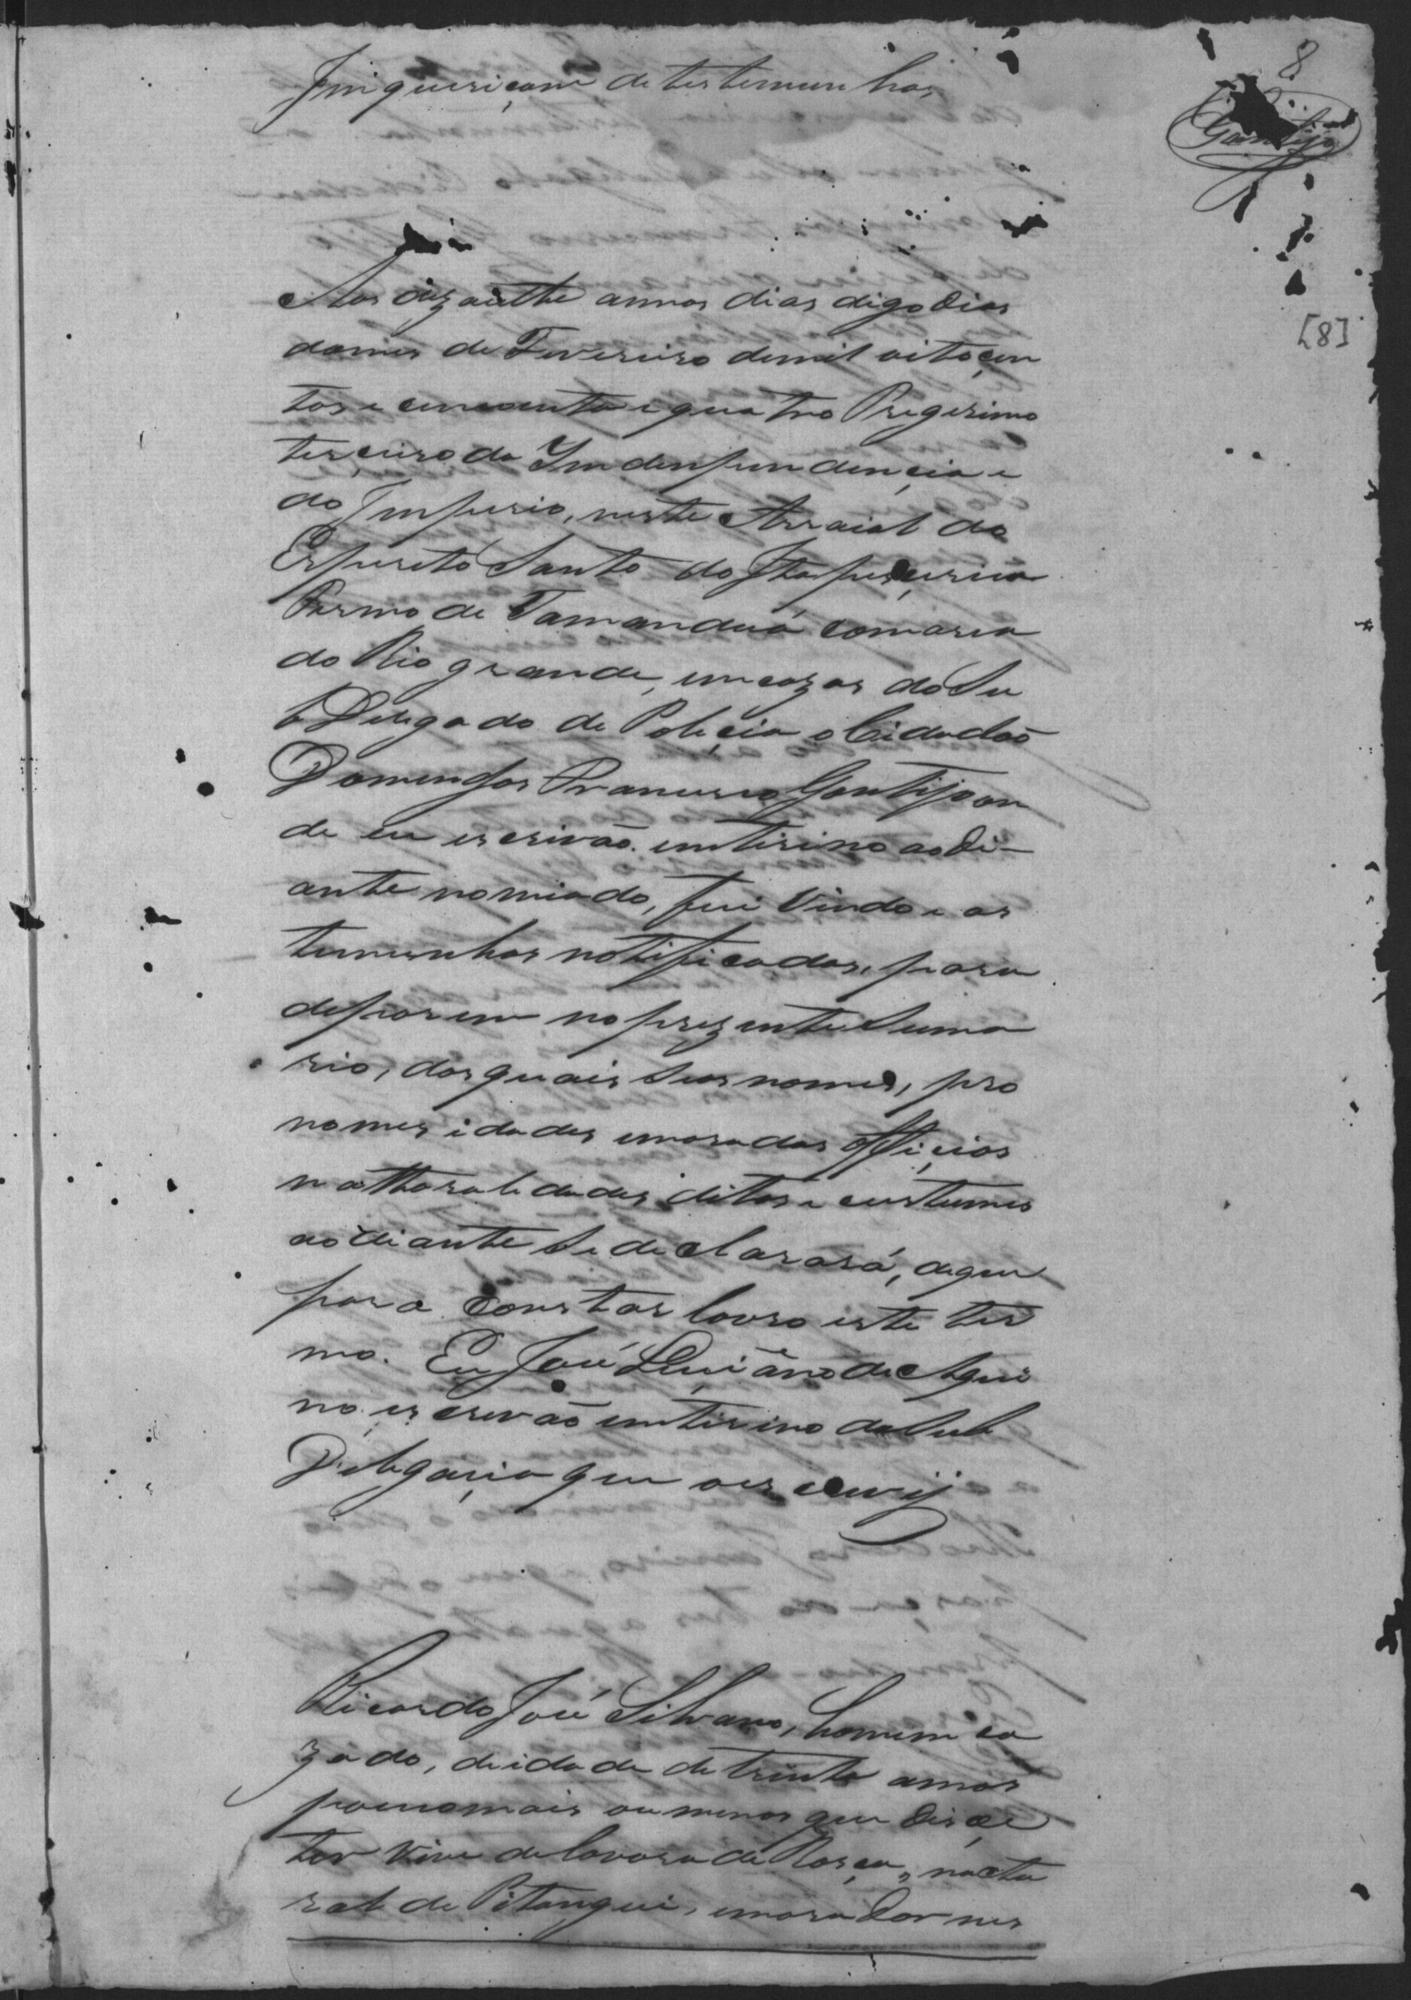 8
Gontijo
[8]
Jnquericam de testemunhas
Aos dezacithe annos dias digo Dias
domes de Fevereiro demil oitocen
tos e cincoenta e quatro Pregerimo
terceiro da Jndenpendencia e
do Jmperio, neste Arraial do
Espereto Santo do Jtapecerica
Termo de Tamanduá comarca
do Rio grande, emcazas do Su
bDelegado de Policia o Cidadão
Domingos Francisco Gontijo on
de eu escrivão enterino aodi-
ante nomiado, fui Vindo e as
temunhas notificadas, para
deporem no prezente Suma
rio, dos quais Seus nomes, pro
nomes idades moradas officios
nathoralidades ditos e custumes
aodiante Se declarará, deque
para Constar lavro este ter
mo. Eu José Luiano de Aqui
no escrevão enterino da Sub
Delegacia que oescrevij
Ricardo José Silvano, homem ca
zado, de idade de trinta annos
poucomais ou menos que disce
ter Vive de lavora de Rosca, nactu
ral de Pitangui, morador nes